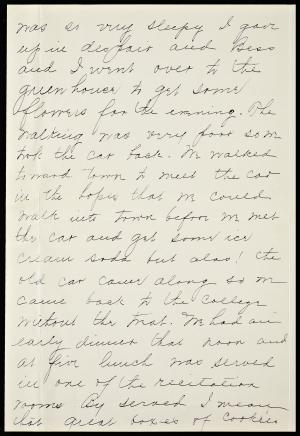 was so very sleepy I gave
up in despair and Bess
and I went over to the
green house to get some
flowers for the evening. The
walking was very poor so we
took the car back. We walked
toward town to meet the car
in the hopes that we could
walk into town before we met
the car and get some ice
cream soda but alas! the
old car came along so we
came back to the college
without the treat. We had an
early dinner that noon and
at five lunch was served
in one of the recitation
rooms By served I mean
that great boxes of cookies